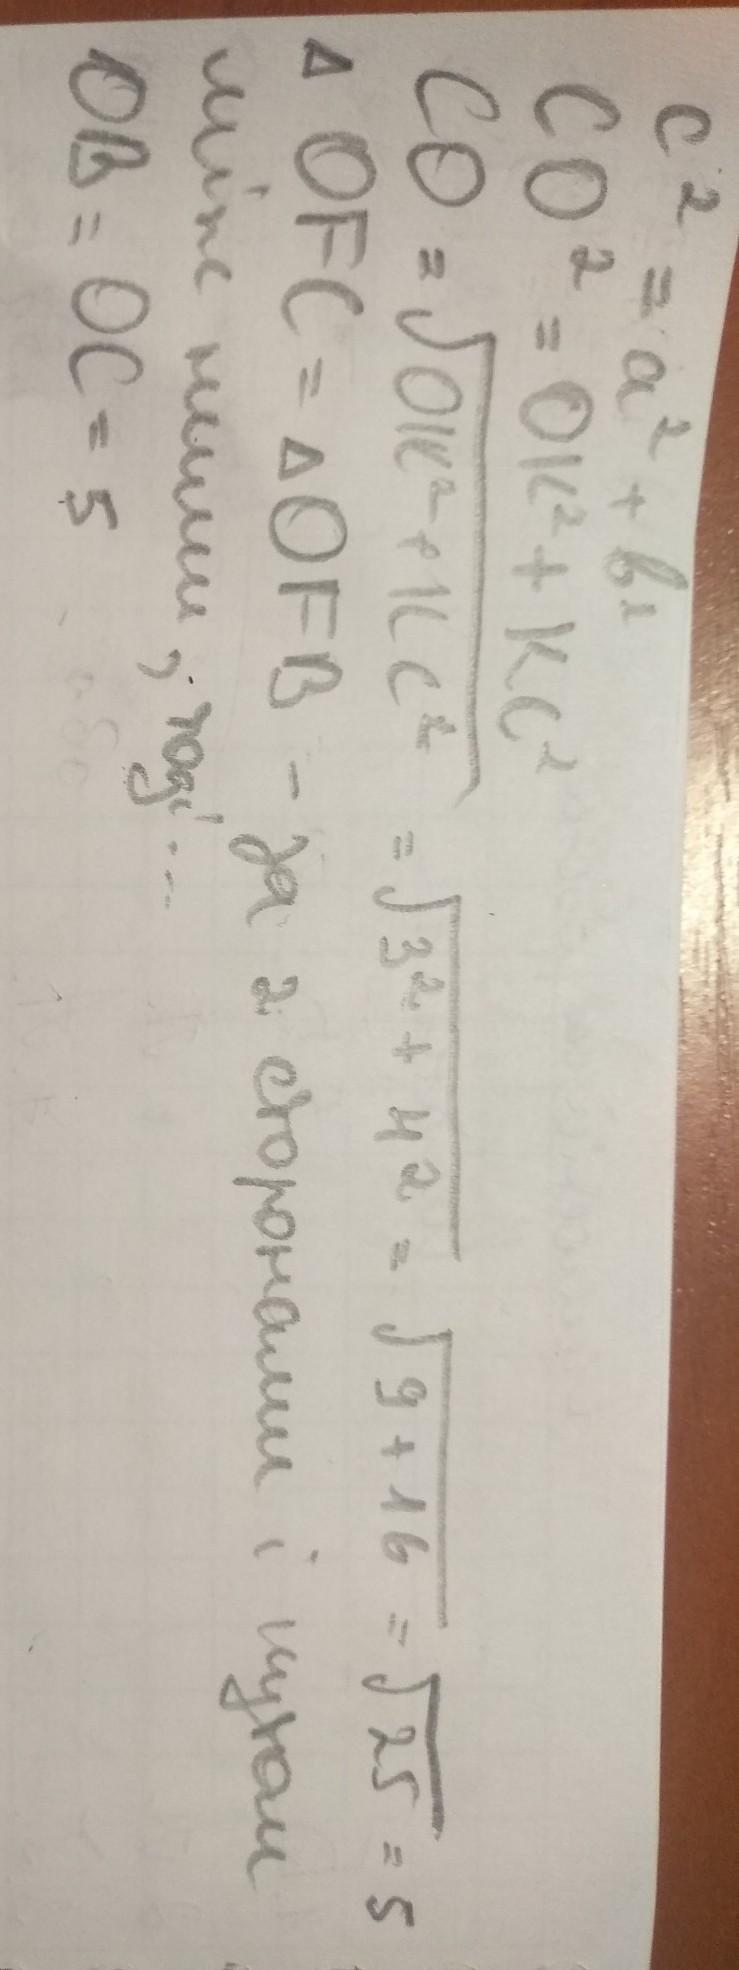 c² = a² + b²
CO² = OK² + KC²
CO = √OK² + KC² = √3² + 4² = √9 + 16 = √25 = 5
Δ OFC = Δ OFB - за 2 сторонами і кутом
між ними, тоді...
OB = OC = 5